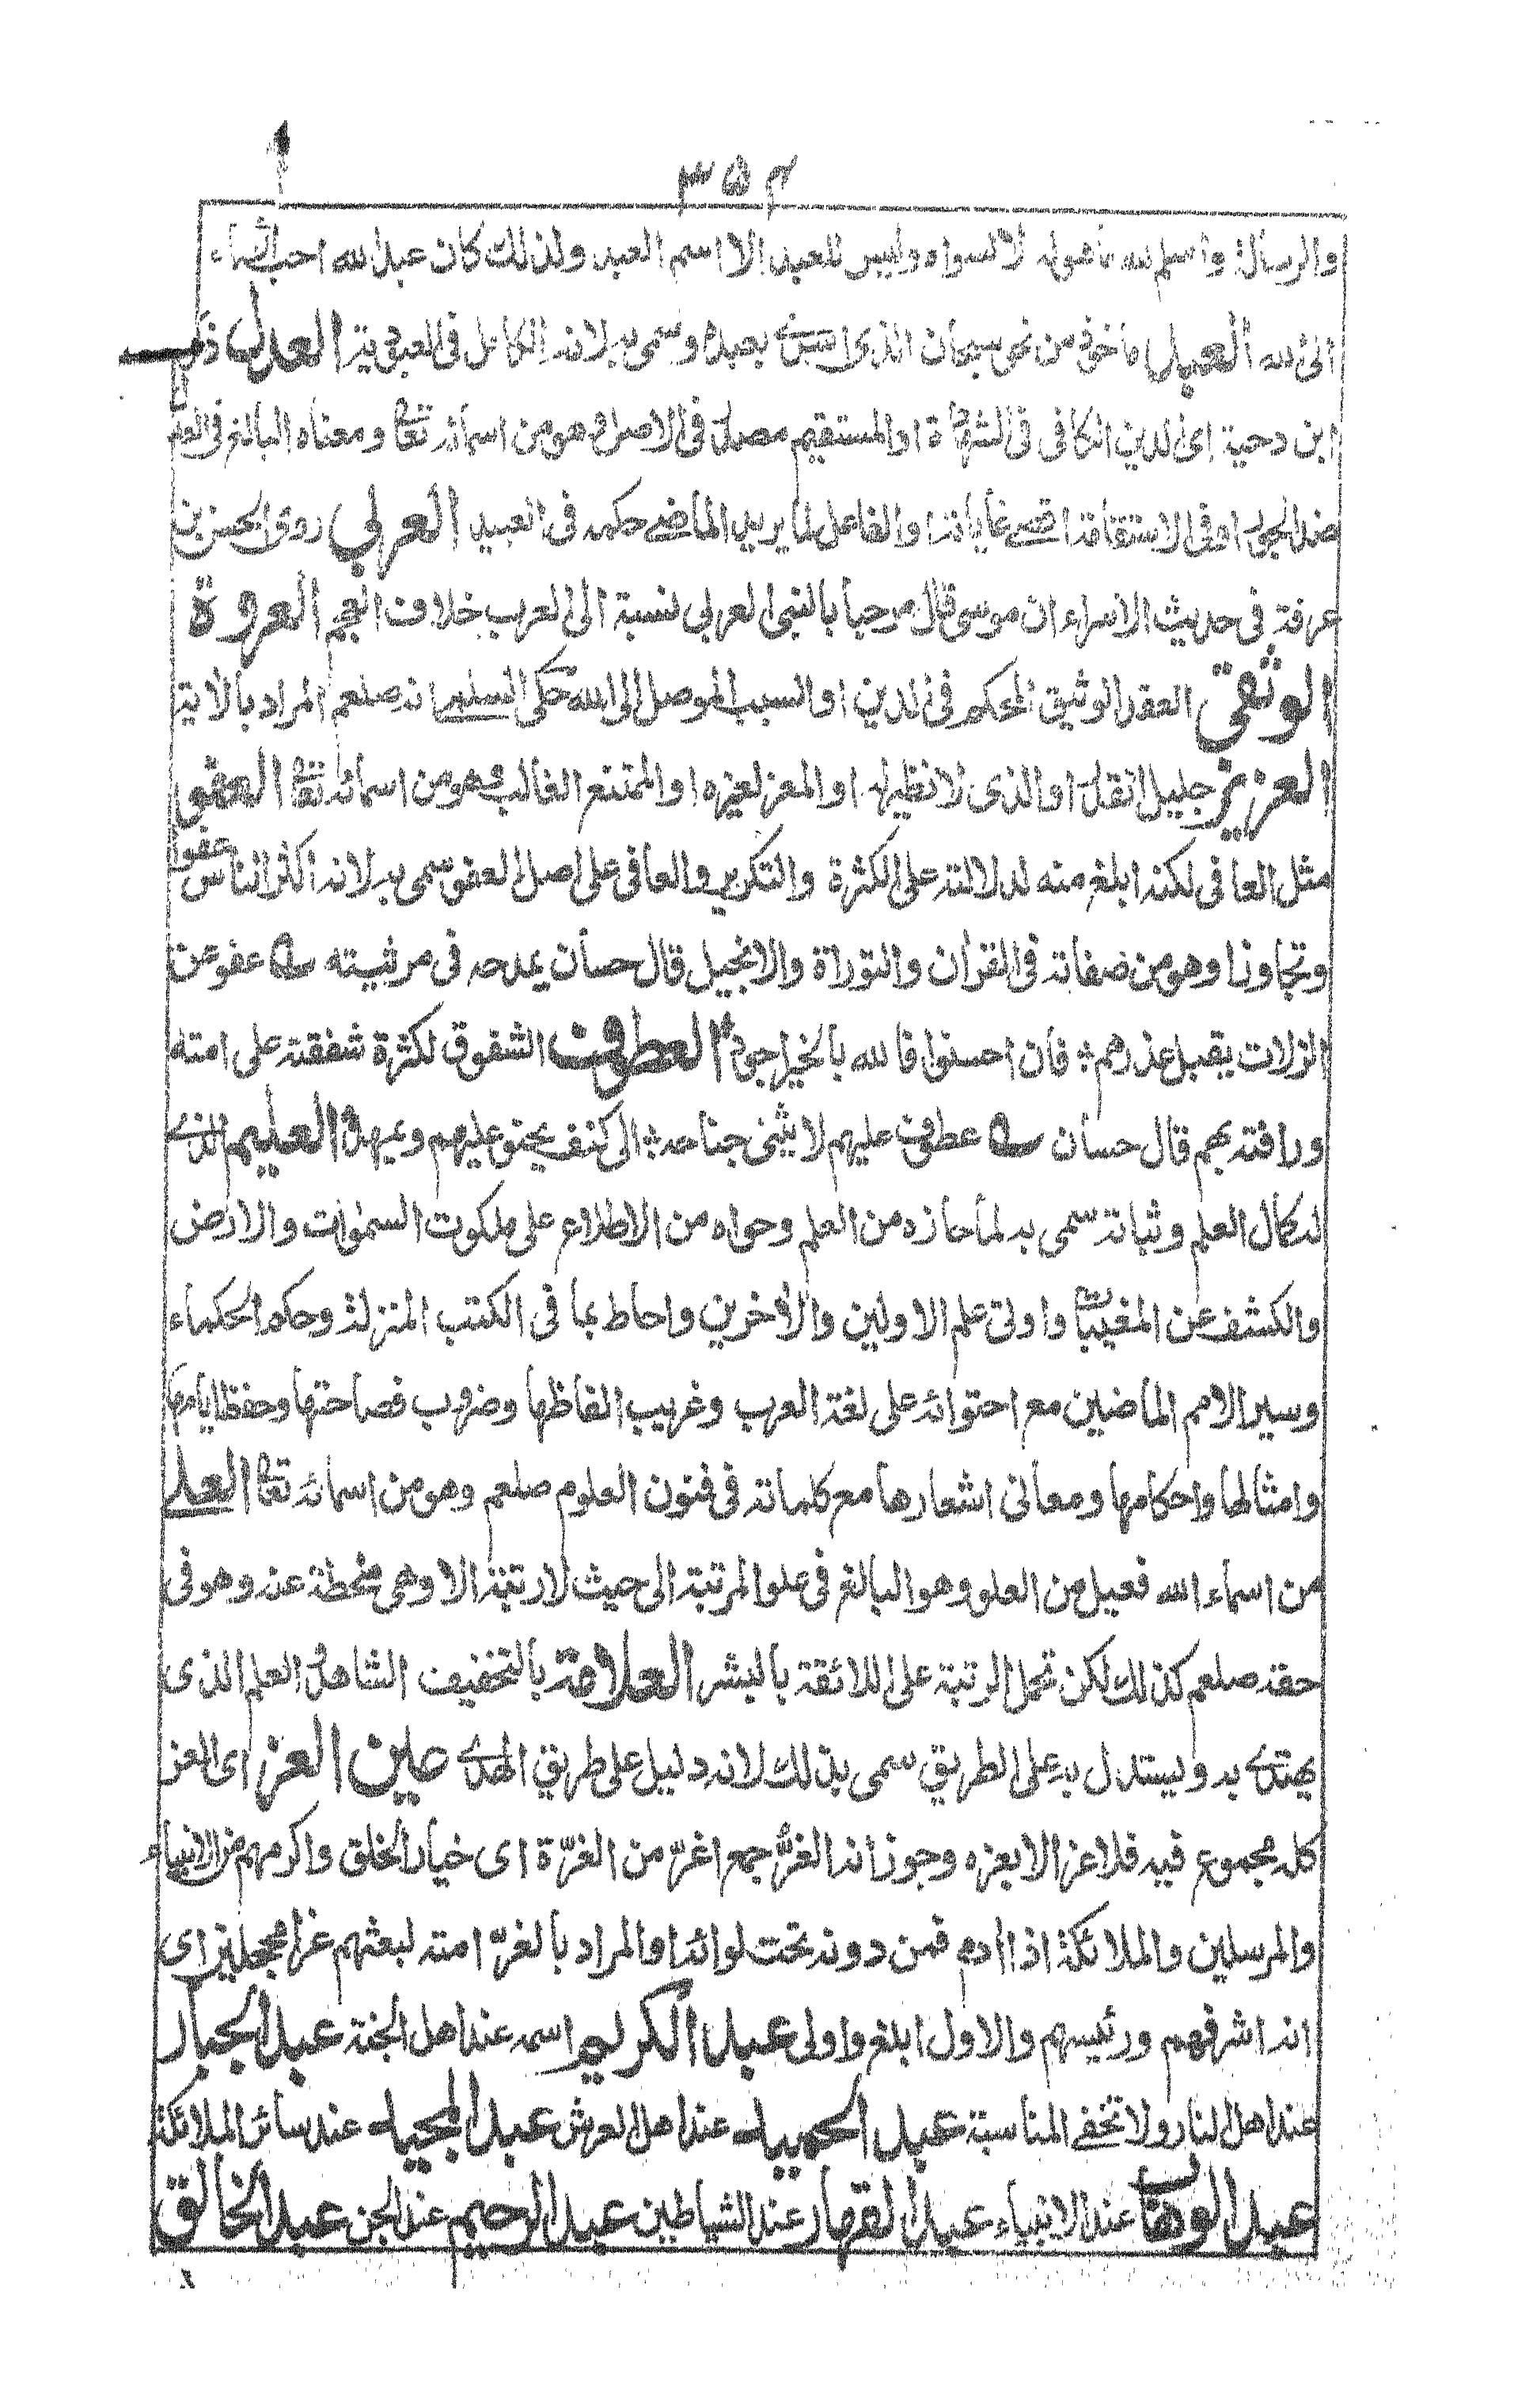 ٣٥٤
والرسالة واسلم لله ماهوله لا لسواه وليس للعبد الا اسم العبد ولذلك كان عبد الله احب الاسماء
الى الله العبد ماخوذ من نحو سبحان الذى اسرى بعبده وسمى به لانه الكامل فى العبودية العدل ذكره
ابن دحية اى الدين الكافى فى الشهادة او المستقيم مصدر فى الاصل وهو من اسمائه تعالى ومعناه البالغ فى العدل
ضد الجور او فى الاستقامة اقصى غاياتها والفاعل لما يريد الماضى حكمه فى العبيد العربي روى الحسن بن
عرفة فى حديث الاسراء ان موسى قال مرحبا بالنبى العربى لنسبة الى العرب خلاف العجم العروة
الوثقى العقد الوثيق المحكم فى الدين او السبب الموصل الى الله حكى السلمى انه صلعم المراد بالاية
العزيز جليل القدر او الذى لا نظير له او المعز لغيره او الممتنع الغالب وهو من اسمائه تعالى العفو
مثل العافى لكنه ابلغ منه لدلالته على الكثرة والتكرير والعافى على اصل العفو سمى به لانه اكثر الناس عفوا
وتجاوزا وهو من صفاته فى القران والتوراة والانجيل قال حسان يمدحه فى مرثيته عفو عن
الزلات يقبل عذرهم : فان احسنوا فالله بالخير اجود العطوف الشفوق لكثرة شفقته على امته
ورافته بهم قال حسان عطوف عليهم لا يثنى جناحه : الى كنف يحنو عليهم ويمهد العليم الذى
له كمال العلم وثباته سمى به لما حازه من العلم وحواه من الاطلاع على ملكوت السموات والارض
والكشف عن المغيبات واوتى علم الاولين والاخرين واحاط بما فى الكتب المنزلة وحكم الحكماء
وسير الامم الماضين مع احتوائه على لغة العرب وغريب الفاظها وضروب فصاحتها وحفظ ايامها
وامثالها واحكامها ومعانى اشعارها مع كلماته فى فنون العلوم صلعم وهو من اسمائه تعالى العلى
من اسماء الله فعيل من العلو وهو البالغ فى علو المرتبة الى حيث لا رتبة الا وهى منحطة عنه وهو فى
حقه صلعم كذلك لكن تحمل الرتبة على اللائقة بالبشر العلامة بالتخفيف الشاهد العلم الذى
يهتدى به ويستدل به على الطريق سمى بذلك لانه دليل على طريق الهدى عين العز اى العز
كله مجموع فيه فلا عز الا بعزه وجوز انه الغر جمع اغر من الغرة اى خيار الخلق واكرمهم من الانبياء
والمرسلين والملائكة اذ ادم فمن دونه تحت لوائه او المراد بالغر امته لبعثهم غرا محجلين اى
انه اشرفهم ورئيسهم والاول ابلغ واولى عبد الكريم اسمه عند اهل الجنة عبد الجبار
عند اهل النار ولا تخفى المناسبة عبد الحميد عند اهل العرش عبد المجيد عند سائر الملائكة
عبد الوهاب عند الانبياء عبد القهار عند الشياطين عبد الرحيم عند الجن عبد الخالق